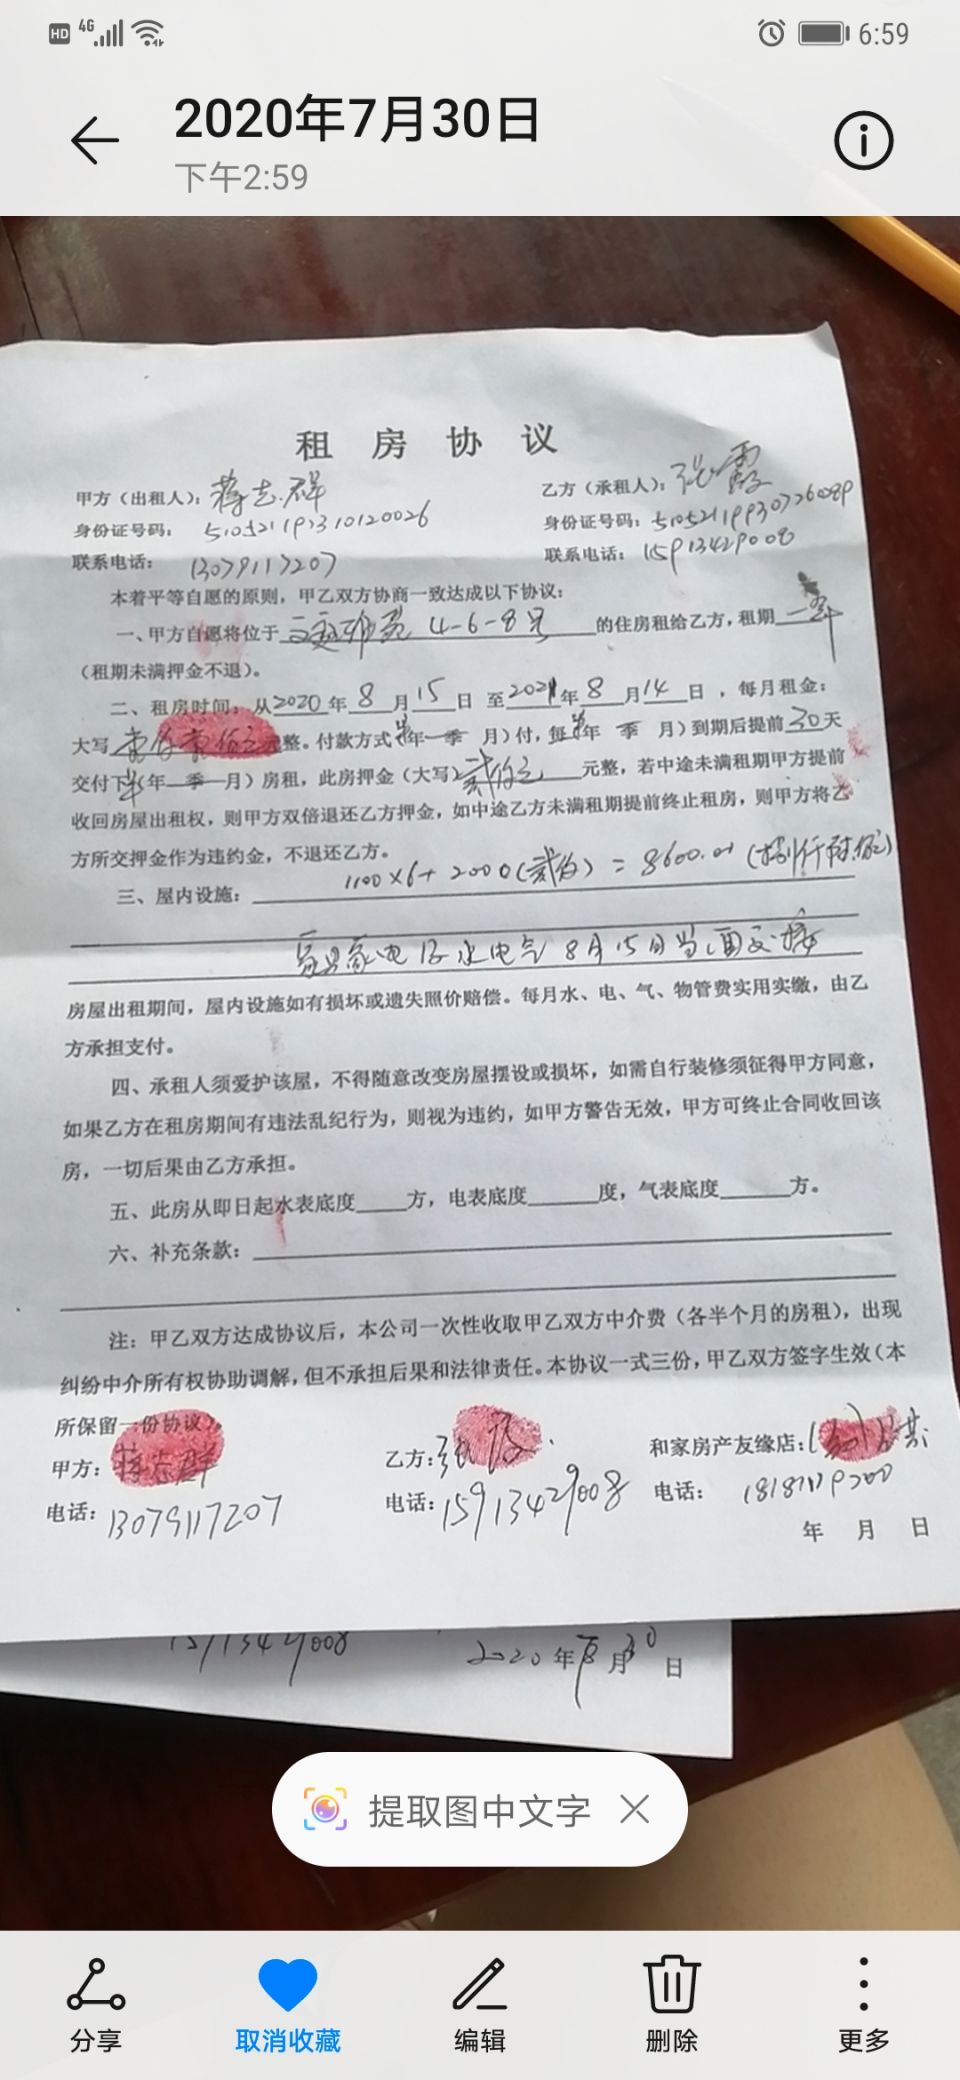 HD 4G 6:59
2020年7月30日
下午2:59
租房协议
甲方（出租人）：蒋志群
乙方（承租人）：张霞
身份证号码：
身份证号码：
联系电话：13079117207
联系电话：15913429008
本着平等自愿的原则，甲乙双方协商一致达成以下协议：
一、甲方自愿将位于 4-6-8号 的住房租给乙方，租期一年
（租期未满押金不退）。
二、租房时间：从2020年8月15日 至2021年8月14日，每月租金：
大写 整。付款方式半年 季 月）付，每半年 季 月）到期后提前30天
交付下半（年 季 月）房租，此房押金（大写） 元整，若中途未满租期甲方提前
收回房屋出租权，则甲方双倍退还乙方押金，如中途乙方未满租期提前终止租房，则甲方将乙
方所交押金作为违约金，不退还乙方。
1100×6+2000 = 8600.00
三、屋内设施：
家具家电及水电气8月15日当面交接
房屋出租期间，屋内设施如有损坏或遗失照价赔偿。每月水、电、气、物管费实用实缴，由乙
方承担支付。
四、承租人须爱护该屋，不得随意改变房屋摆设或损坏，如需自行装修须征得甲方同意，
如果乙方在租房期间有违法乱纪行为，则视为违约，如甲方警告无效，甲方可终止合同收回该
房，一切后果由乙方承担。
五、此房从即日起水表底度 方，电表底度 度，气表底度 方。
六、补充条款：
注：甲乙双方达成协议后，本公司一次性收取甲乙双方中介费（各半个月的房租），出现
纠纷中介所有权协助调解，但不承担后果和法律责任。本协议一式三份，甲乙双方签字生效（本
所保留一份协议）。
甲方：蒋志群
乙方：张霞
和家房产友缘店：
电话：13079117207
电话：15913429008
电话：
年 月 日
15913429008
2020年 月30日
提取图中文字
分享 取消收藏 编辑 删除 更多